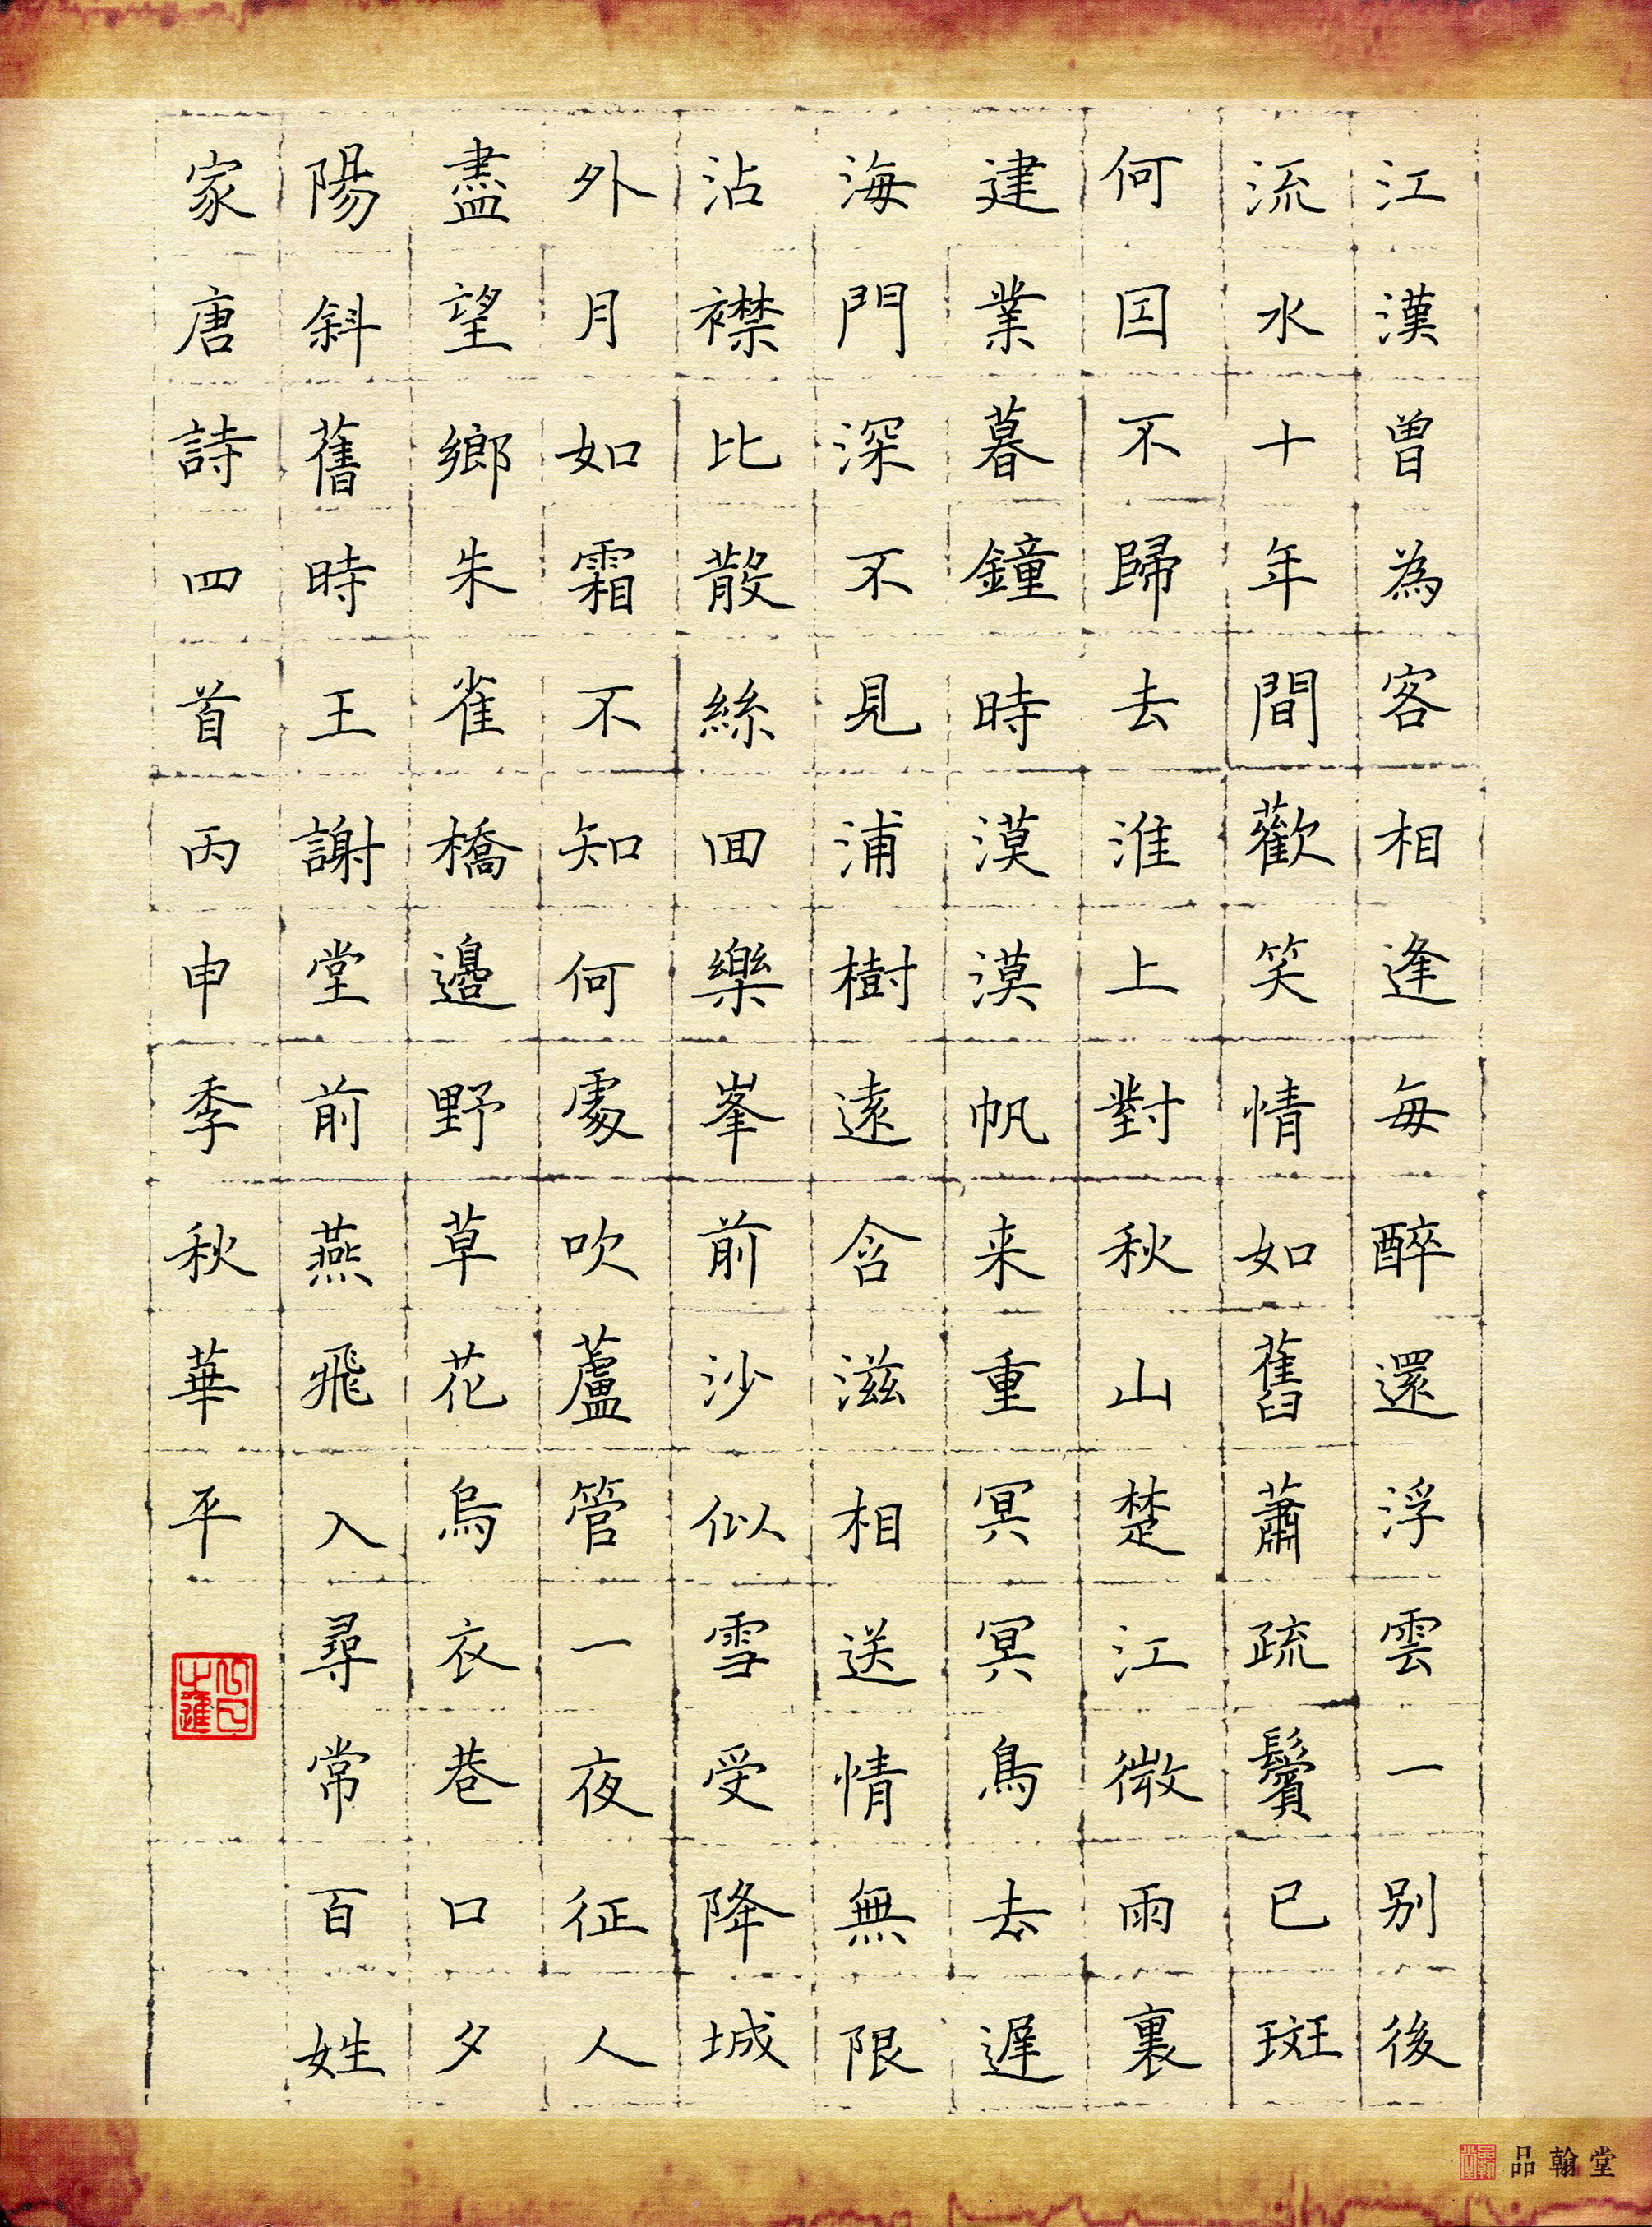 江漢曾為客相逢每醉還浮雲一别後
流水十年間歡笑情如舊蕭疏鬢已斑
何囙不歸去淮上對秋山楚江微雨裏
建業暮鐘時漠漠帆来重冥冥鳥去遲
海門深不見浦樹遠含滋相送情無限
沾襟比散絲囬樂峯前沙似雪受降城
外月如霜不知何處吹蘆管一夜征人
盡望鄉朱雀橋邊野草花烏衣巷口夕
陽斜舊時王謝堂前燕飛入尋常百姓
家唐詩四首丙申季秋華平
品翰堂